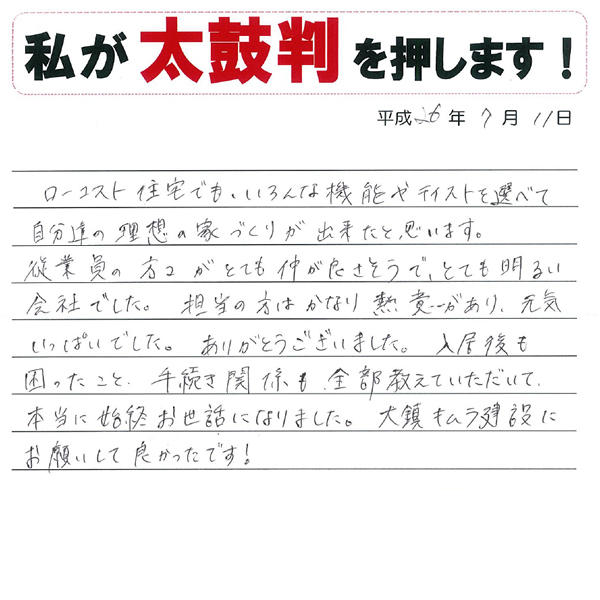 私が太鼓判を押します！
平成26年7月11日
ローコスト住宅でも、いろんな機能やテイストを選べて
自分達の理想の家づくりが出来たと思います。
従業員の方々がとても仲が良さそうで、とても明るい
会社でした。担当の方はかなり熱意があり、元気
いっぱいでした。ありがとうございました。入居後も
困ったこと、手続き関係も、全部教えていただいて、
本当に始終お世話になりました。大鎮キムラ建設に
お願いして良かったです!